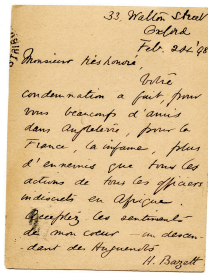 33, Walton Street
Oxford
Feb. 24' '98
Monsieur très honoré,
Votre
condemnation a fait, pour
vous beaucoup d'amis
dans Angleterre, pour la
France, la infame, plus
d'ennemis que tous les
actions de tous les officiers
indiscrets en Afrique.
Acceptez les sentiments
de mon coeur — un descen-
dant des Huguenots
H. Bazett